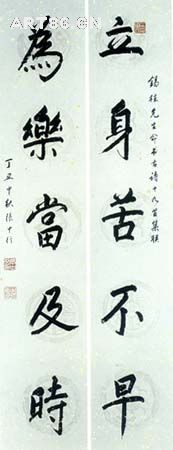 ART86.CN
立身苦不早
錫桂先生命書古詩十九首集聯
為樂當及時
丁丑中秋張大行